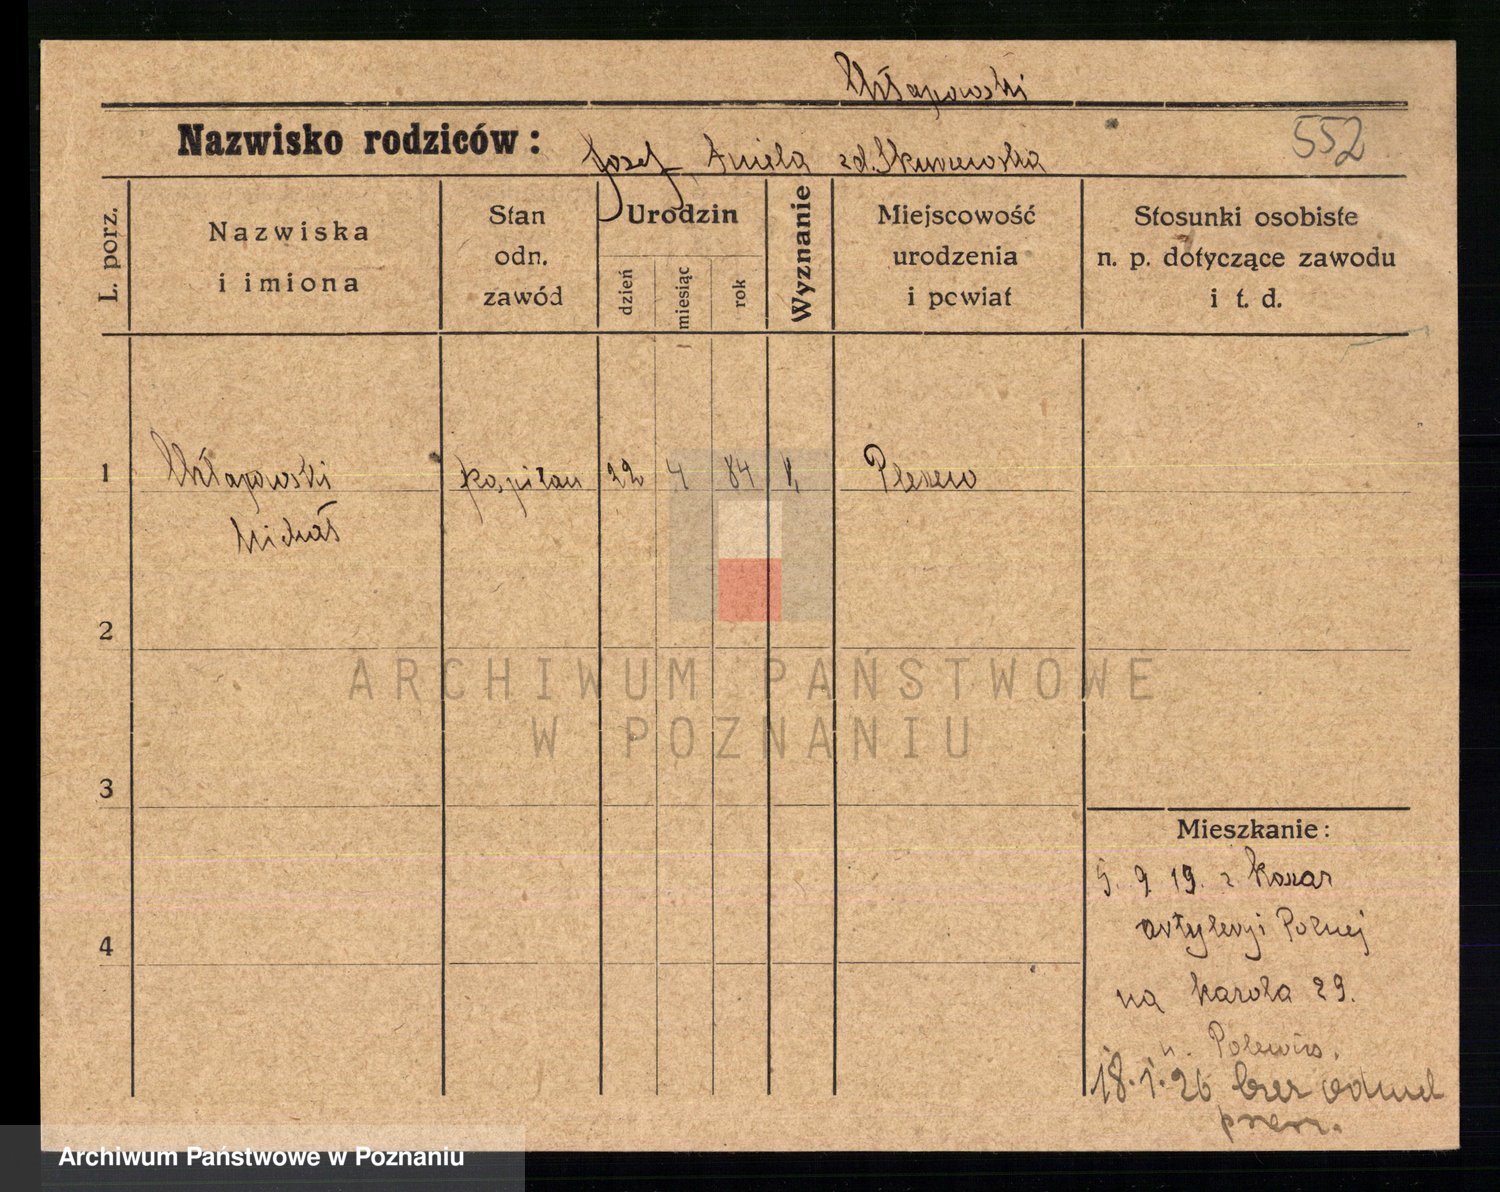 Chłapowski
Nazwisko rodziców: Józef, Aniela zd. Skrzewska
552
L. porz.
Nazwiska
i imiona
Stan
odn.
zawód
Urodzin
dzień
miesiąc
rok
Wyznanie
Miejscowość
urodzenia
i powiat
Stosunki osobiste
n. p. dotyczące zawodu
i t. d.
1
Chłapowski
Michał
kapitan
22
4
84
k,
Plesew
2
ARCHIWUM PAŃSTWOWE
W POZNANIU
3
Mieszkanie:
5. 9. 19. z koszar
artyleryi Polnej
4
na Karola 29.
18.1.26 bez odmel
Archiwum Państwowe w Poznaniu